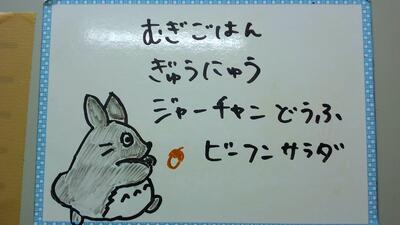 むぎごはん
ぎゅうにゅう
ジャーチャンどうふ
ビーフンサラダ